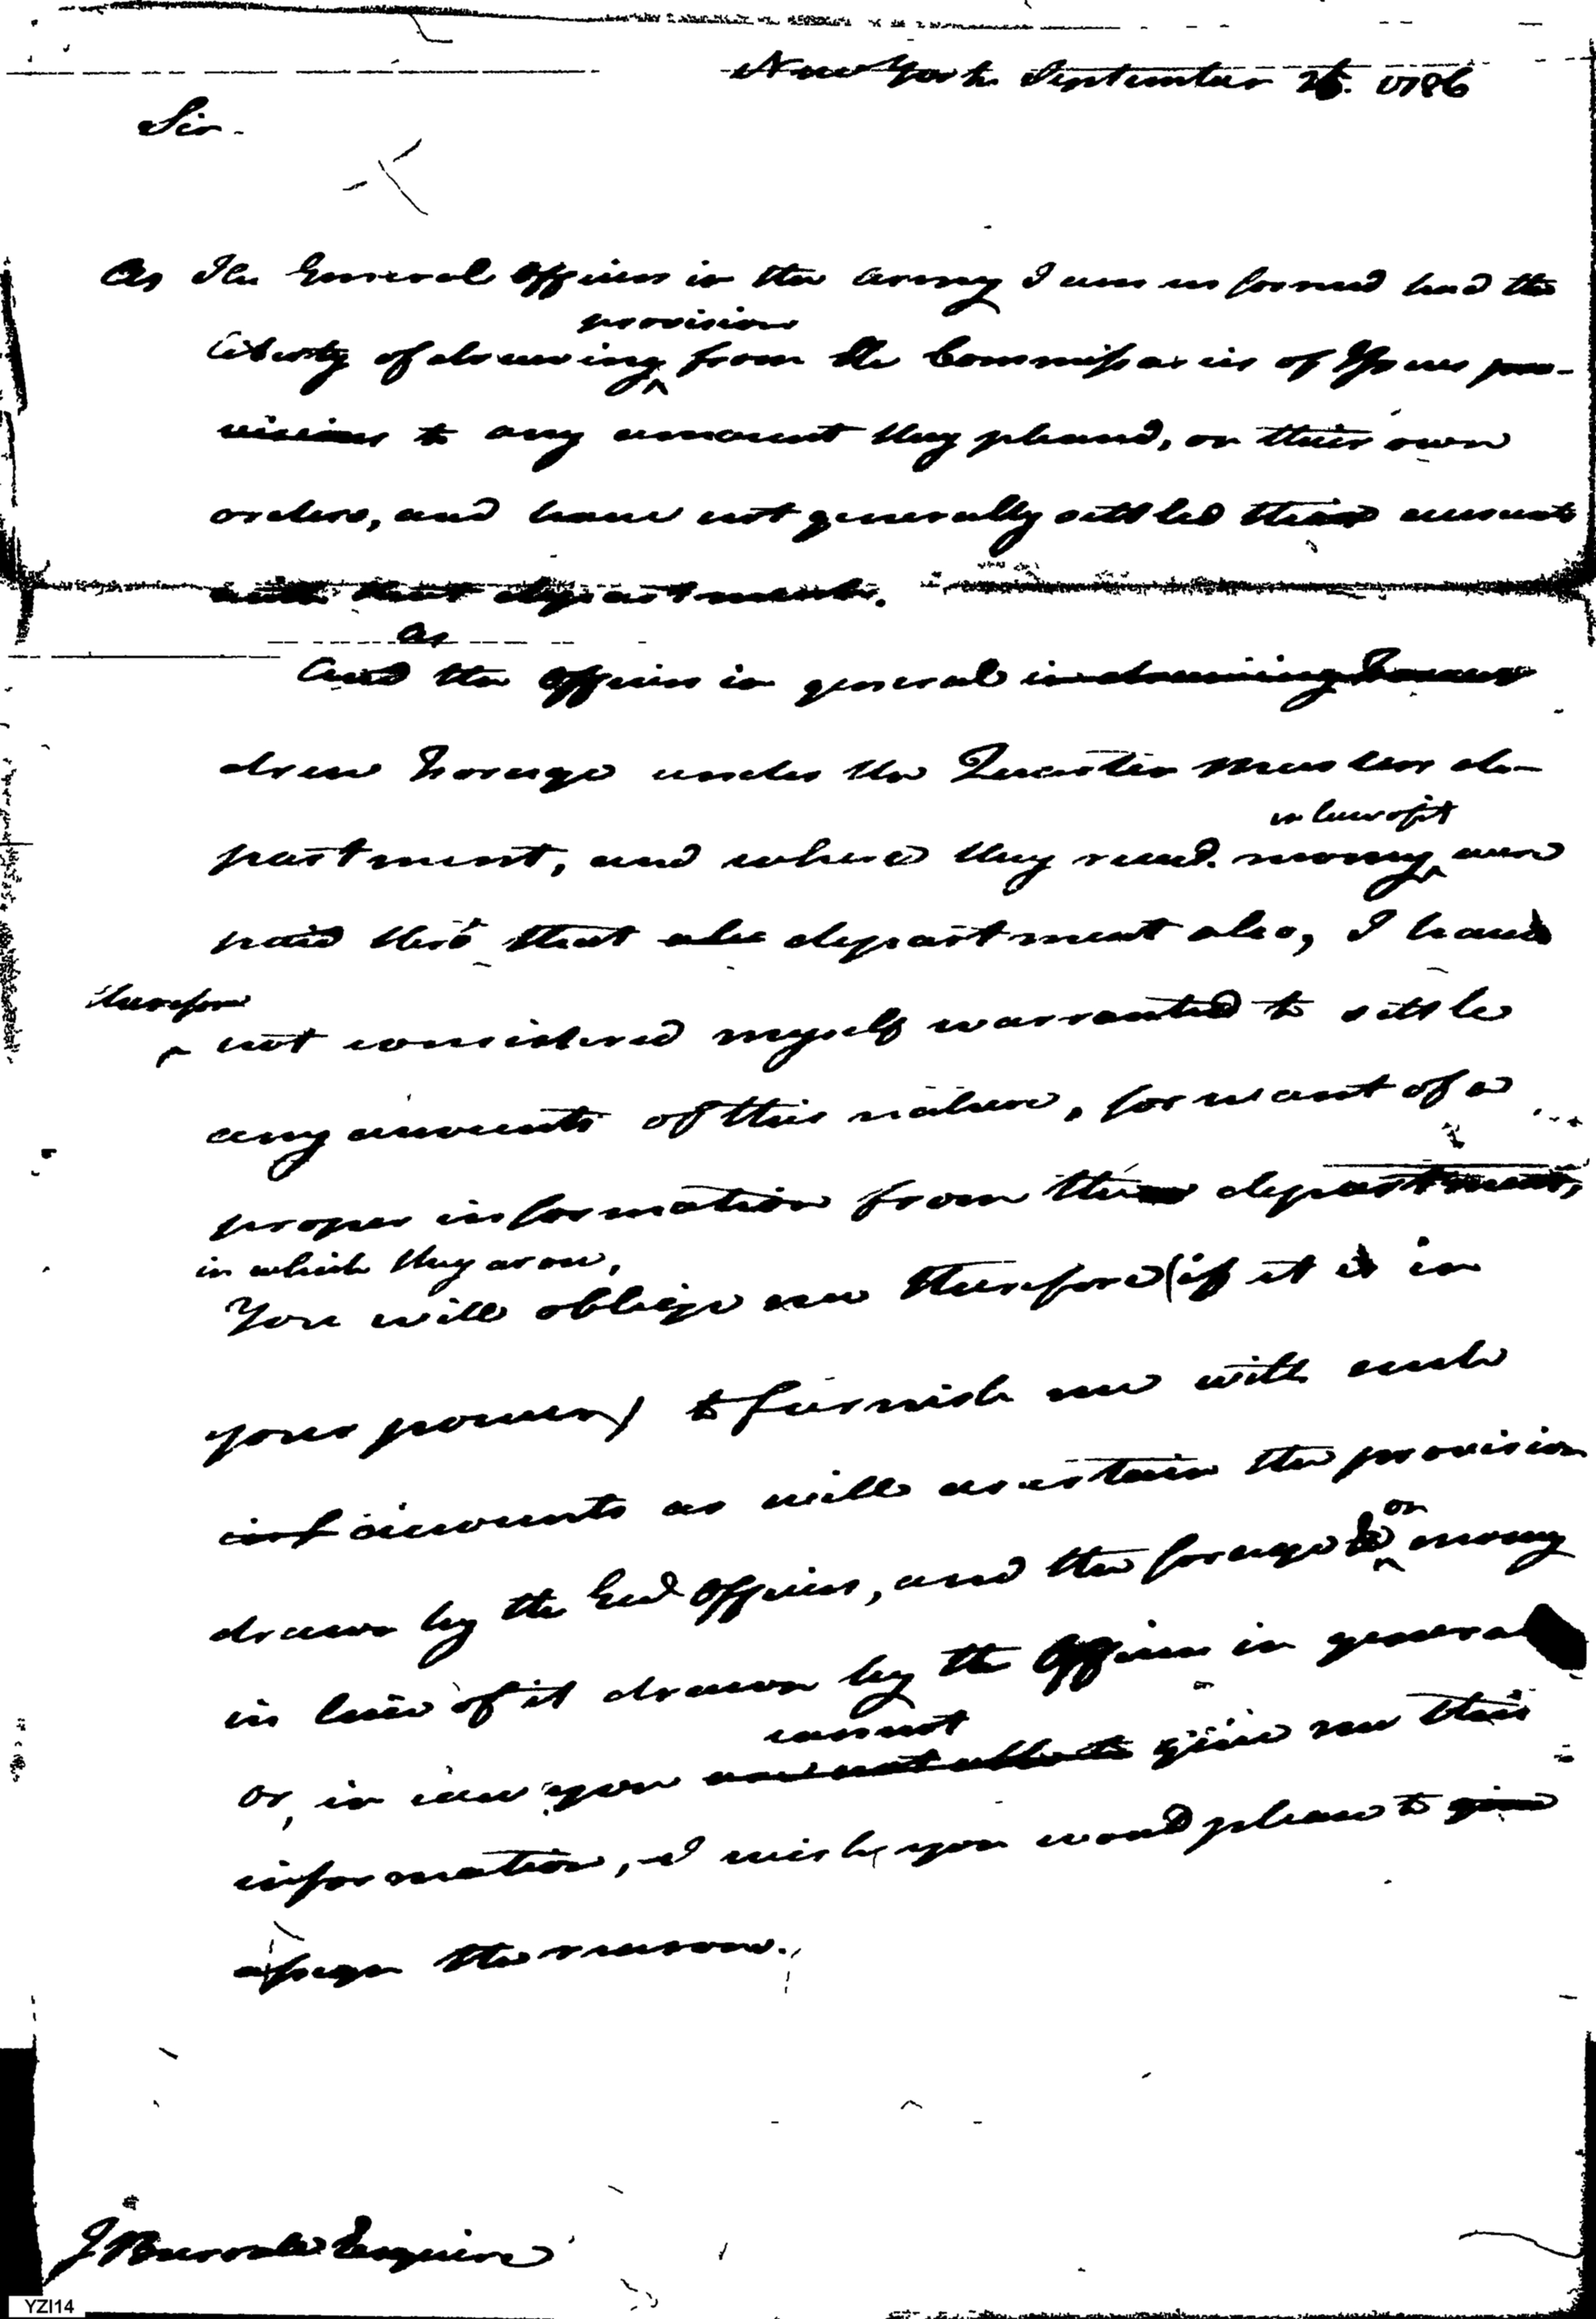 New York September 26. 1786
Sir.
As The General Officers in the army I am informed had the
provision
liberty of drawing from the Commissaries of Issues pro-
visions to any amount they pleased, on their own
orders, and have not generally settled their accounts
with that department.
As
And the Officers in general in drawing Forage
drew Forage under the Quarter Masters de-
in lieu of it
partment, and where they recd. money were
paid thro' that als department also, I have
therefore
not considered myself warranted to settle
any accounts of this nature, for want of a
proper information from the departments,
in which they arose,
You will obliege me therefore (if it is in
your power) to furnish me with such
inf accounts as will ascertain the provision
or
drawn by the Genl Officers, and the forage money
in lieu of it drawn by the Officers in general
cannot
or, in case you are not able to give me this
information, I wish you would please to give
assign the reason.
J Burrall Esquire
YZI14